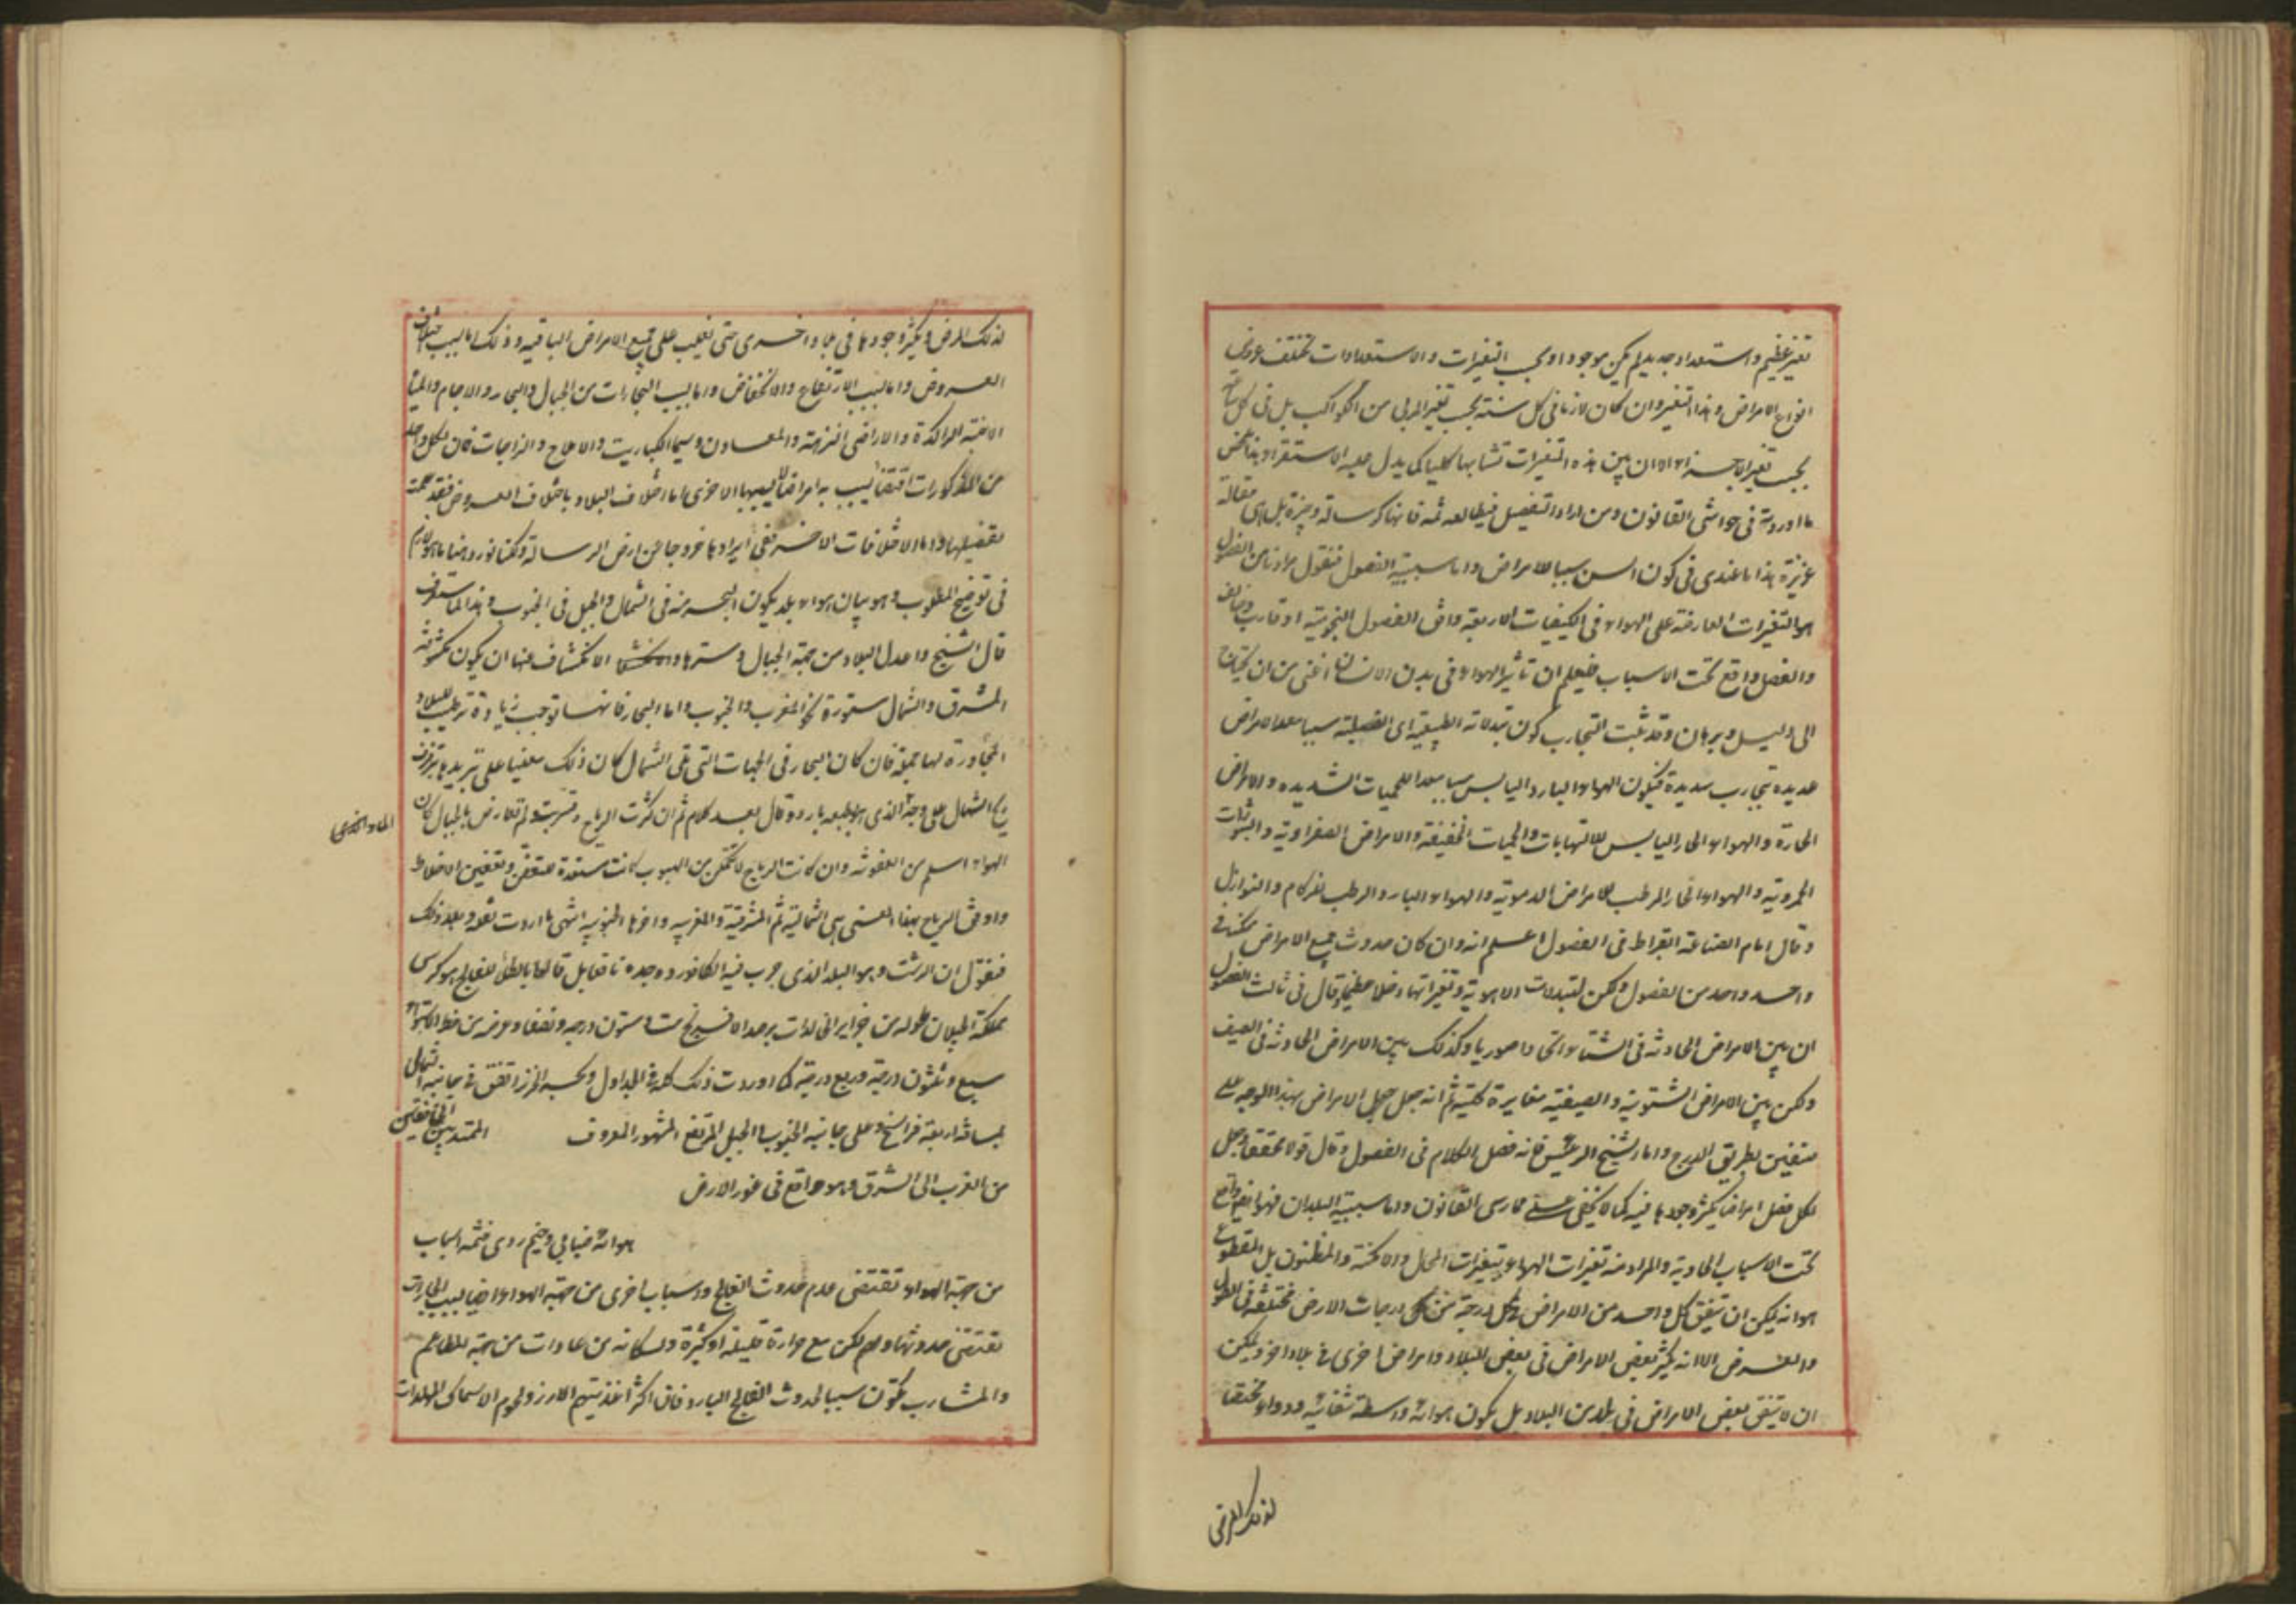 تغير عظيم واستعداد جديد لم يكن موجودا وبحسب التغيرات والاستعدادات تختلف عروض
انواع الامراض وهذا التغير وان كان لازما فى كل سنة بحسب تغير المربى من الكواكب بل فى كل
بحسب تغير الاجزاء الا ان بين هذه التغيرات تشابها كليا كما يدل عليه الاستقراء وهذا
ما اوردته فى حواشى القانون ومن اراد التفصيل فليطالعه ثمه فانها كرسالة وجيزة بل هى مقالة
عزيزة هذا ما عندى فى كون السن سببا للامراض واما سببية الفصول فنقول مرادنا من الفصول
هو التغيرات العارضة على الهواء فى الكيفيات الاربعة وافق الفصول النجومية او قارب وخالف
والفصل واقع تحت الاسباب فليعلم ان تاثير الهواء فى بدن الانسان اغنى من ان يحتاج
الى دليل وبرهان وقد ثبت التجارب كون تبدلاته الطبيعية اى الفصلية سببا معدا لامراض
عديدة تجارب سديدة فيكون الهواء البارد اليابس سببا معدا للحميات الشديده والامراض
الحارة والهواء الحار اليابس للالتهابات والحميات الخفيفة والامراض الصفراوية والبثورات
الجمروية والهواء الحار المرطب للامراض الدموية والهواء البارد الرطب للزكام والنوازل
وقال امام الصناعة ابقراط فى الفصول اعلم انه وان كان حدوث جميع الامراض ممكنا فى
واحد واحد من الفصول ولكن لتبدلات الاهوية وتغيراتها دخلا عظيما وقال فى ثالث الفصول
ان بين الامراض الحادثه فى الشتاء اتحادا صوريا وكذلك بين الامراض الحادثه فى الصيف
ولكن بين الامراض الشتوية والصيفية مغايرة كلية ثم انه جعل جعل الامراض بهذا الوجه على
صنفين بطريق الدرج واما الشيخ الرئيس فانه فصل الكلام فى الفصول وقال قولا محققا وجعل
لكل فصل امراضا يكثر وجودها فيه كما لا يخفى على ممارسى القانون واما سببية البلدان فهو ايضا واقع
تحت الاسباب البادية والمراد منه تغيرات الهواء بتغيرات المحال والامكنة والمظنون بل المقطوع
هو انه يمكن ان يتفق كل واحد من الامراض فى كل درجة من كل درجات الارض مختلفة فى الطول
والعرض الا انه يكثر بعض الامراض فى بعض البلاد وامراض اخرى فى بلاد اخر ويمكن
ان لا يتفق بعض الامراض فى بلد من البلاد بل يكون هوائه واسطة شفائيه ودواء مختصا
لذلك المرض
لذلك المرض ويكثر وجودها فى بلاد اخرى حتى يغلب على جميع الامراض الباقيه وذلك اما بسبب اختلاف
العروض واما بسبب الارتفاع والانخفاض واما بسبب المجاورات من الجبال والبحار والاجام والمياه
الاسنة الراكدة والاراضى النزهة والمعادن وسيما الكباريت والاملاح والزاجات فان لكل واحد
من المذكورات اقتضا يسبب به امراضا لا يسببها الاخرى اما اختلاف البلاد باختلاف العروض فقد
تفصيلها واما الاختلافات الاخر ففى ايرادها خروجا من ارض الرسالة ولكنا نورد هنا ما هو لازم
فى توضيح المطلوب وهو بيان هواء بلد يكون البحر منه فى الشمال والجبل فى الجنوب وهذا لما ستعرف
قال الشيخ واعدل البلاد من جهة الجبال وسترها والانكشاف عنها ان يكون مكشوفة
المشرق والشمال مستورة نحو المغرب والجنوب واما البحار فانها توجب زيادة ترطيب للبلاد
المجاورة لها جملة فان كان البحار فى الجهات التى تلى الشمال كان ذلك معينا على تبريدها بترقرق
ريح الشمال على وجه الذى هو بطبعه بارد وقال بعد كلام ثم ان كثرت الرياح وتسربت ولم تعارض بالجبال كان
الماء الذى
الهواء اسلم من العفونة وان كانت الرياح لا تتمكن من الهبوب كانت مستعدة للتعفن وتعفين الاخلاط
واوفق الرياح بهذا المعنى هى الشمالية ثم المشرقية والمغربيه واخرها الجنوبيه انتهى ما اردت نقله وبعد ذلك
فنقول ان الرشت وهو البلد الذى جرب فيه الكافور ووجده نا قابل قالعا بالطبع للفالج هو كرسى
مملكة الجيلان طوله من جزاير الخالدات برصد الافرنج ست وستون درجه ونصفا وعرضه من خط الاستواء
سبع وثلثون درجة وربع درجة كما اوردت ذلك كله فى الجداول وبحر الخزر اتفق فى جانبه الشمال
لمسافة اربعة فراسخ وعلى جانبه الجنوب الجبل المرتفع المشهور المعروف الممتد بين الخافقين
من الغرب الى الشرق وهو واقع فى غور الارض
هوائه ضبابى وخيم ردى فثمة اسباب
من جهة الهواء تقتضى عدم حدوث الفالج واسباب اخرى من جهة الهواء ايضا بسبب المجاورات
تقتضى حدوثها ولكن مع حرارة قليلة او كثيرة ولسكانه من عادات من جهة المطاعم
والمشارب تكون سببا لحدوث الفالج البارد فان اكثر اغذيتهم الارز ولحوم الاسماك المولدات